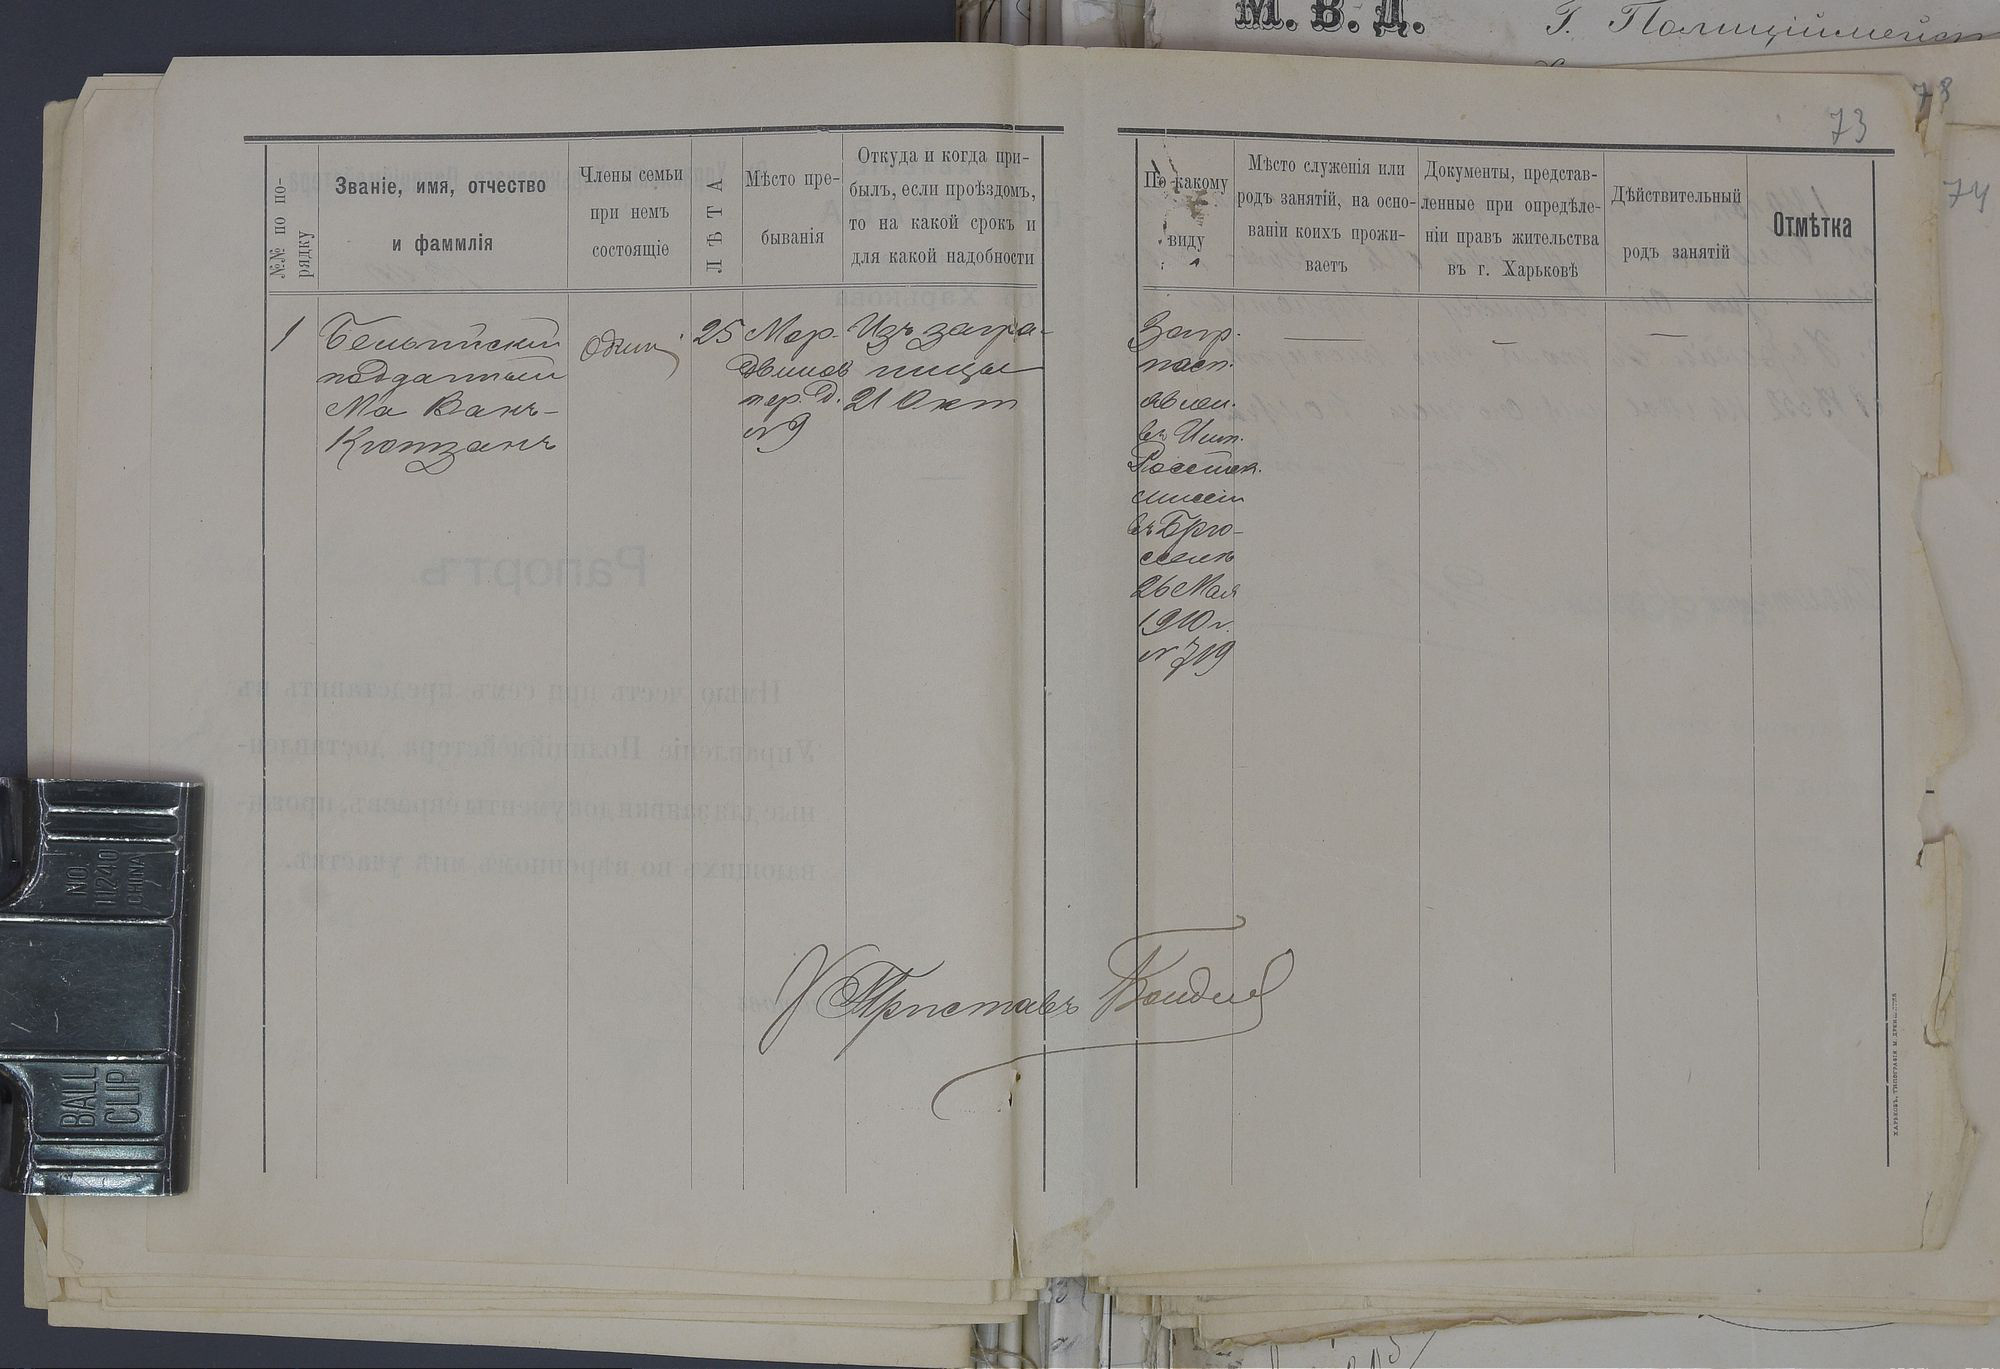 М. В. Д.
Г. Полиціймейст
73
78
74
№№ по по-
рядку
Званіе, имя, отчество
и фаммлія
Члены семьи
при немъ
состоящіе
ЛѢТА
Мѣсто пре-
быванія
Откуда и когда при-
былъ, если проѣздомъ,
то на какой срокъ и
для какой надобности
По какому
виду
Мѣсто служенія или
родъ занятій, на осно-
ваніи коихъ прожи-
ваетъ
Документы, представ-
ленные при опредѣле-
ніи правъ жительства
въ г. Харьковѣ
Дѣйствительный
родъ занятій
Отмѣтка
1
Бельгійскій
подданный
Ма Ванъ-
Кютзанъ
Одинъ
25
Мор-
двинов
пер. д.
№ 9
Изъ загра-
ницы
21 Окт
Загр.
пасп.
явлен.
въ Имп.
Россійск.
миссіи
въ Брю-
сселѣ
26 Мая
1910 г.
№ 719
Приставъ
Рапортъ
Имѣю честь при семъ представить въ
Управленіе Полиціймейстера доставлен-
ные для заявки документы евреевъ, прожи-
вающихъ во ввѣренномъ мнѣ участкѣ.
ХАРЬКОВЪ, ТИПОГРАФІЯ М.
NO.
11240
CHINA
BALL
CLIP